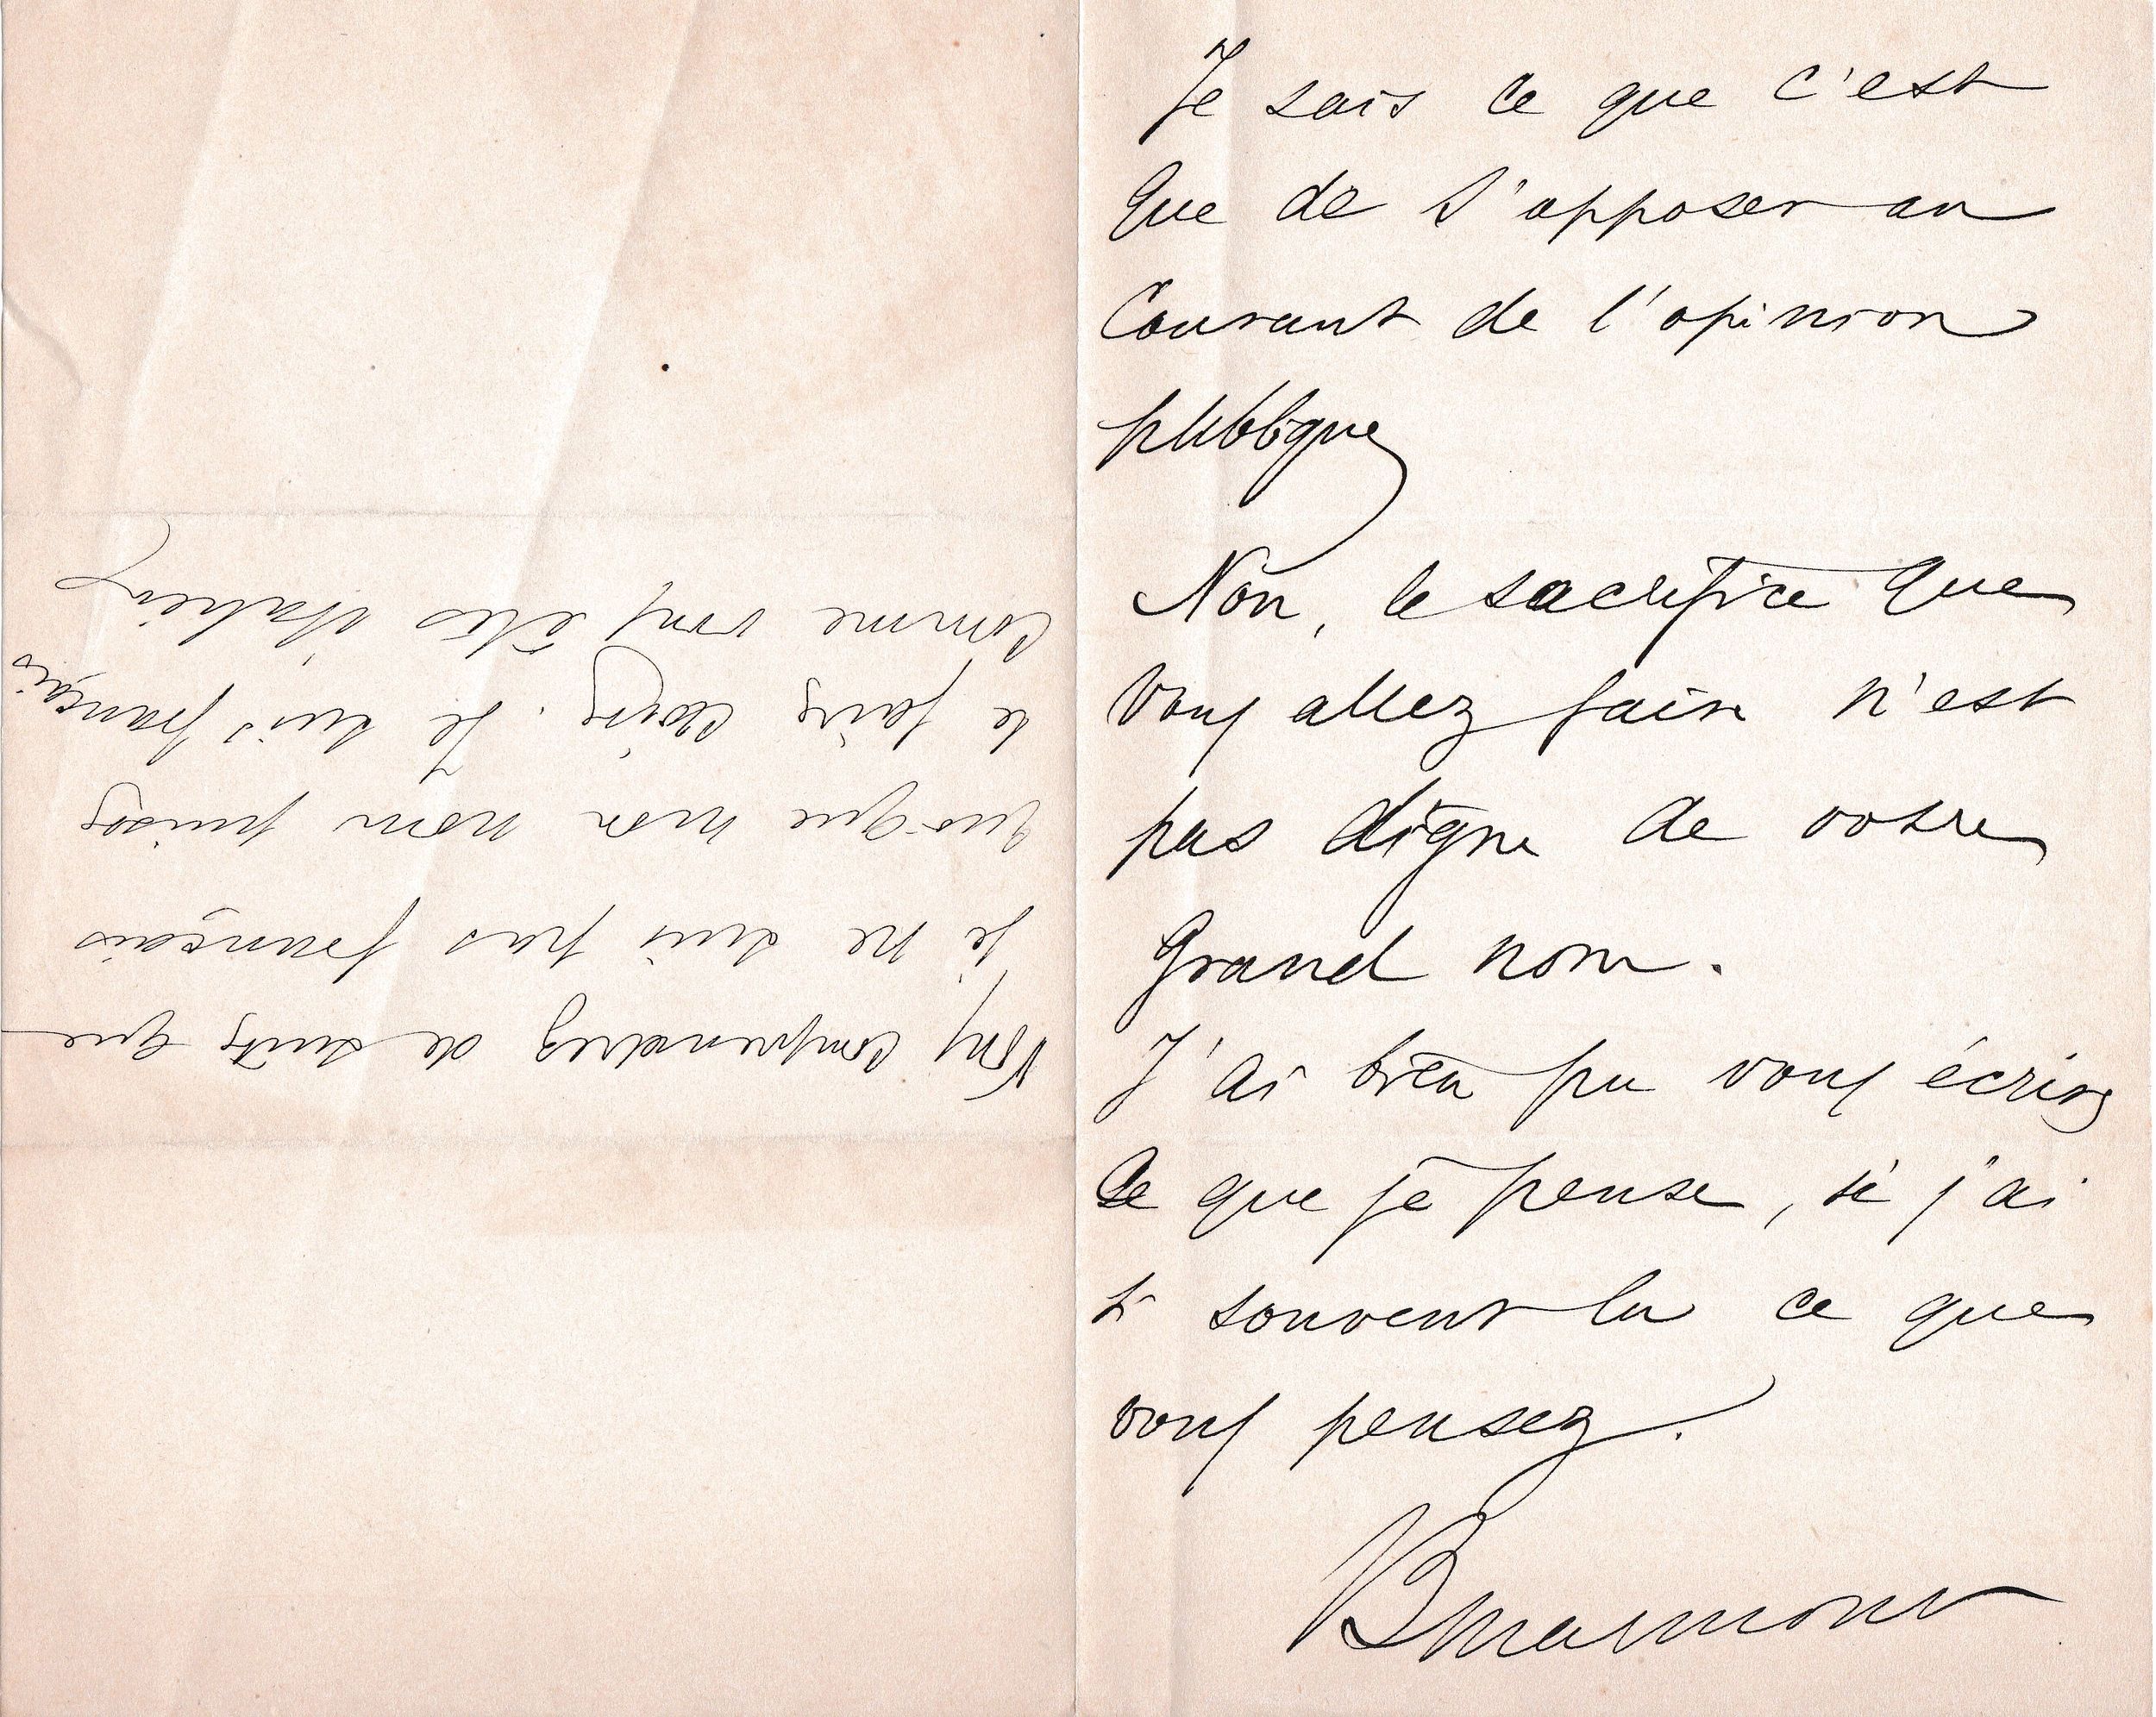 Je sais ce que c'est
que de s'opposer au
Courant de l'opinion
publique
Non, le sacrifice que
vous allez faire n'est
pas digne de votre
Grand nom.
J'ai bien pu vous écrire
Ce que je pense, si j'ai
si souvent lu ce que
vous pensez.
Vous comprendrez de suite que
je ne suis pas français
quoique mon nom puisse
le faire croire. Je suis français
comme vous êtes italien